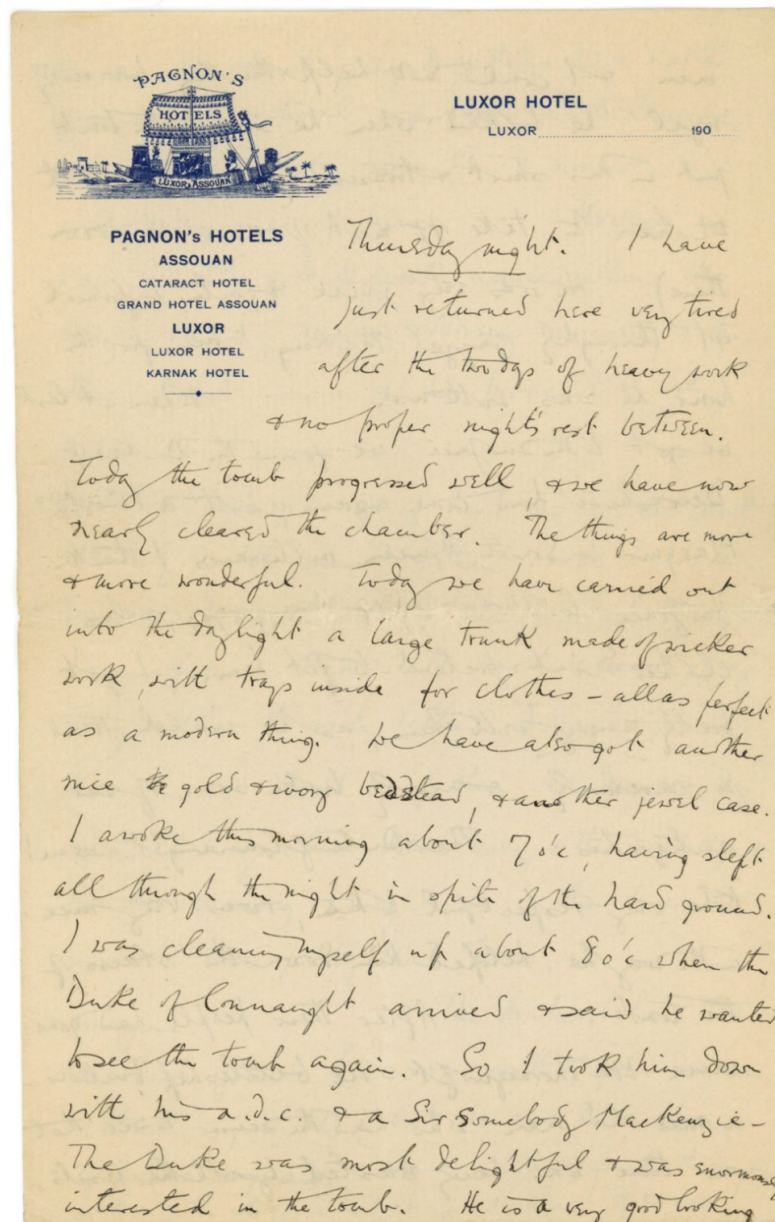 PAGNON'S
HOTELS
LUXOR & ASSOUAN
LUXOR HOTEL
LUXOR 190
PAGNON's HOTELS
ASSOUAN
CATARACT HOTEL
GRAND HOTEL ASSOUAN
LUXOR
LUXOR HOTEL
KARNAK HOTEL
Thursday night. I have
just returned here very tired
after the two days of heavy work
& no proper night's rest between.
Today the tomb progressed well, & we have now
nearly cleared the chamber. The things are more
& more wonderful. Today we have carried out
into the daylight a large trunk made of wicker
work, with trays inside for clothes – all as perfect
as a modern thing. We have also got another
nice gold & ivory bedstead, & another jewel case.
I awoke this morning about 7 o'c, having slept
all through the night in spite of the hard ground.
I was cleaning myself up about 8 o'c when the
Duke of Connaught arrived & said he wanted
to see the tomb again. So I took him down
with his a.d.c. & a Sir Somebody MacKenzie –
The Duke was most delightful & was enormously
interested in the tomb. He is a very good looking